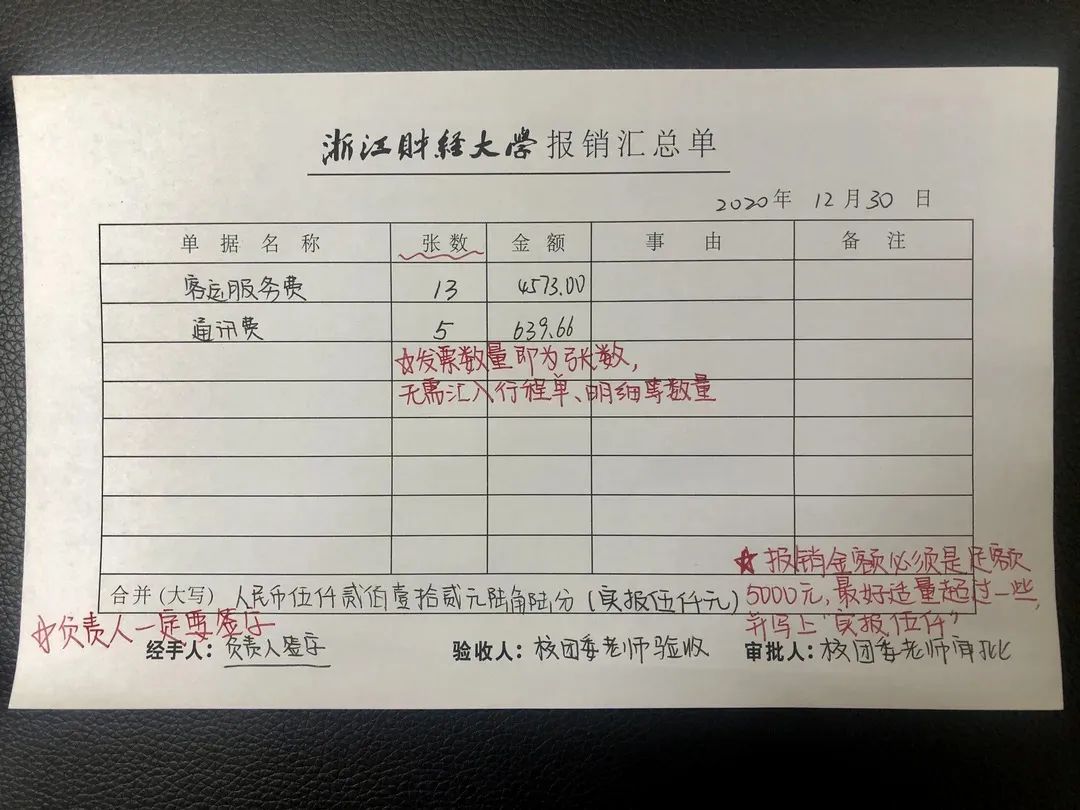 浙江财经大学报销汇总单
2020年 12月30日
单据名称 张数 金额 事由 备注
客运服务费 13 4573.00
通讯费 5 639.66
☆发票数量即为张数,
无需汇入行程单、明细等数量
★报销金额必须是足额
5000元,最好适量超过一些,
并写上“实报伍仟”
合并(大写) 人民币伍仟贰佰壹拾贰元陆角陆分(实报伍仟元)
☆负责人一定要签字
经手人:负责人签字 验收人:校团委老师验收 审批人:校团委老师审批